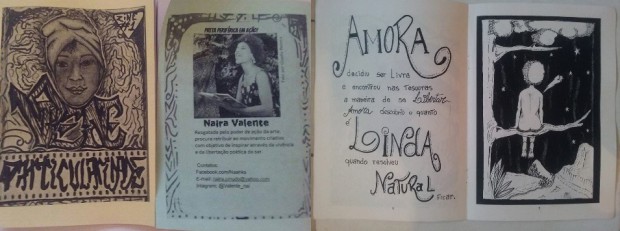 PARTICULARIDADE
POETA PERIFÉRICA EM AÇÃO!
Naira Valente
Resgatada pelo poder de ação da arte
procura retribuir ao movimento criativo
com objetivo de inspirar através da vivência
e da libertação poética do ser.
Contatos:
E-mail:
AMORA
decidiu ser Livre
e encontrou nas Tesouras
a maneira de se Libertar
Amora descobriu o quanto
é
LINDA
quando resolveu
NATURAL
ficar.